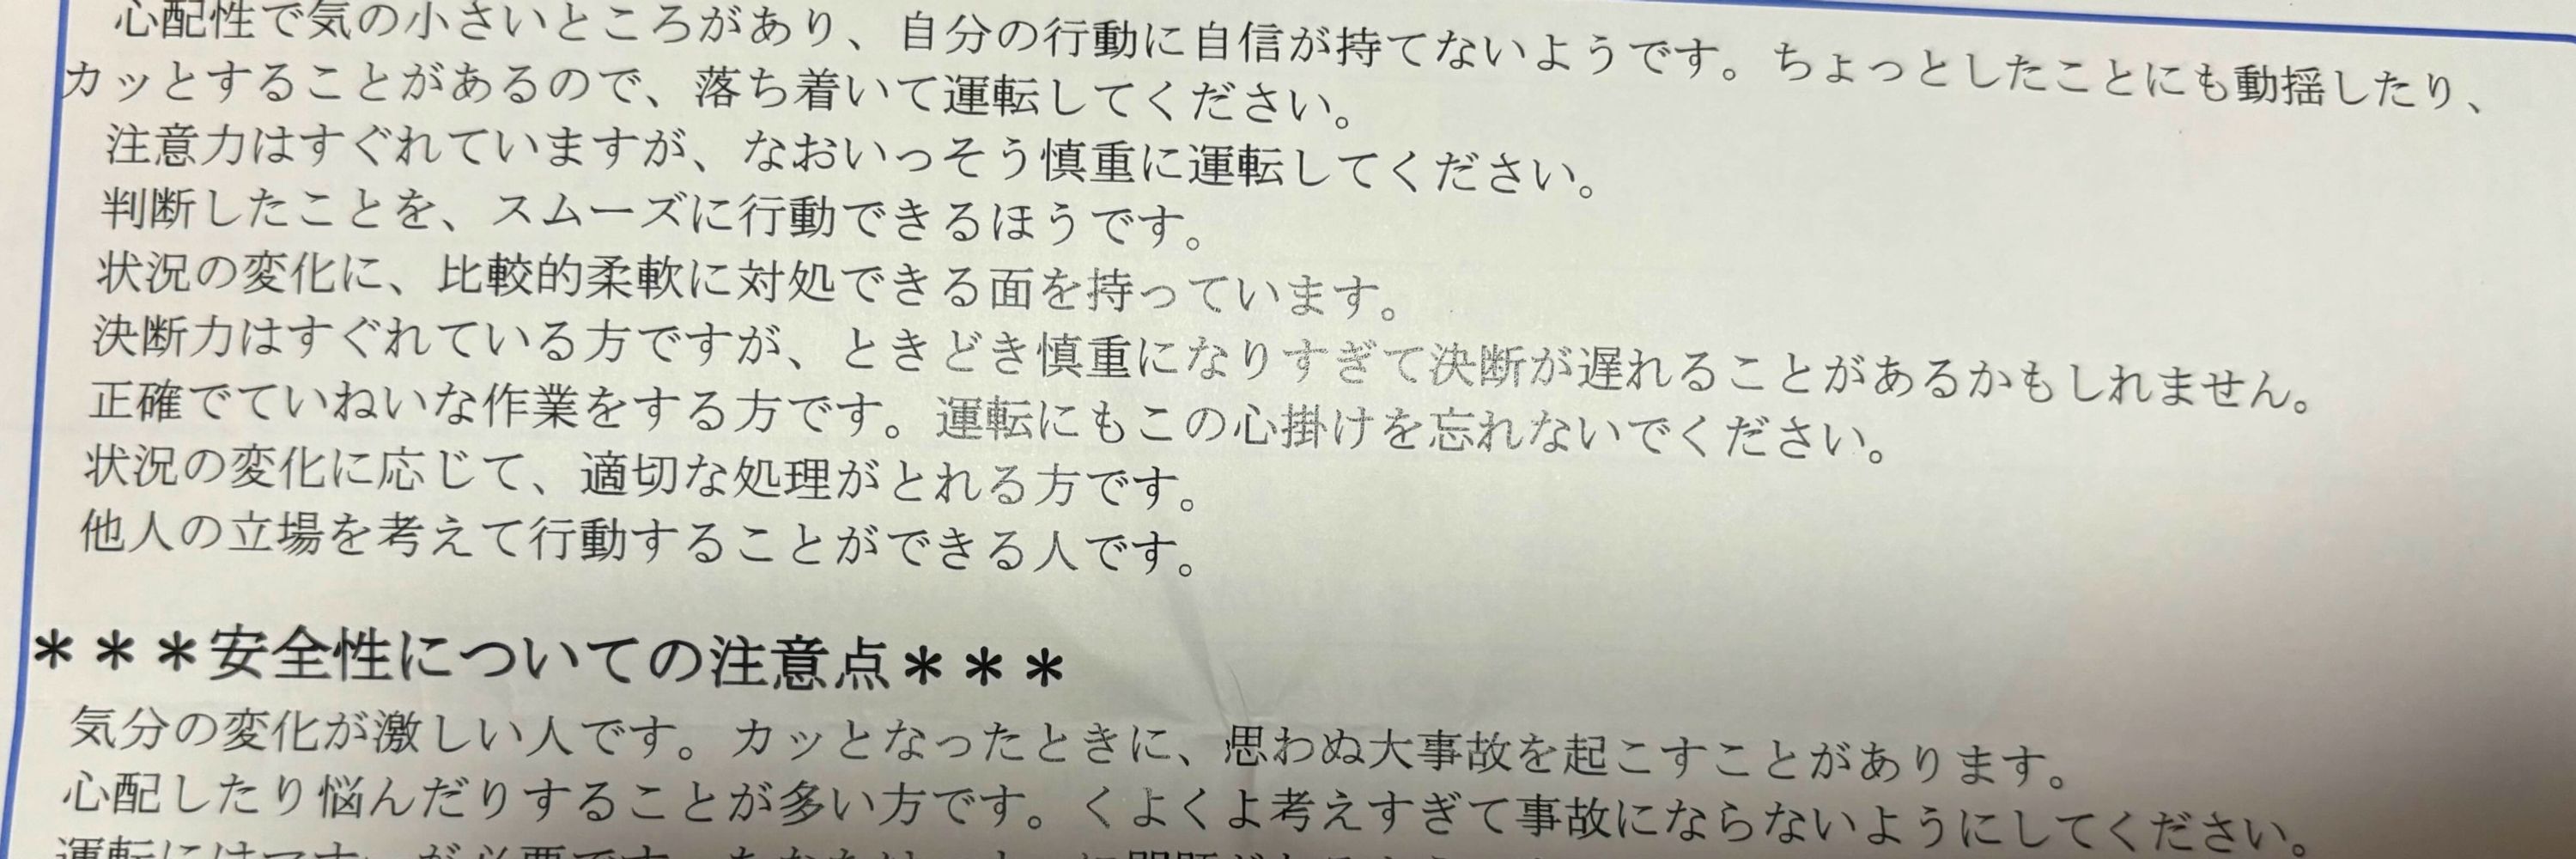 心配性で気の小さいところがあり、自分の行動に自信が持てないようです。ちょっとしたことにも動揺したり、
カッとすることがあるので、落ち着いて運転してください。
注意力はすぐれていますが、なおいっそう慎重に運転してください。
判断したことを、スムーズに行動できるほうです。
状況の変化に、比較的柔軟に対処できる面を持っています。
決断力はすぐれている方ですが、ときどき慎重になりすぎて決断が遅れることがあるかもしれません。
正確でていねいな作業をする方です。運転にもこの心掛けを忘れないでください。
状況の変化に応じて、適切な処理がとれる方です。
他人の立場を考えて行動することができる人です。
＊＊＊安全性についての注意点＊＊＊
気分の変化が激しい人です。カッとなったときに、思わぬ大事故を起こすことがあります。
心配したり悩んだりすることが多い方です。くよくよ考えすぎて事故にならないようにしてください。
運転にはマナーが必要です。